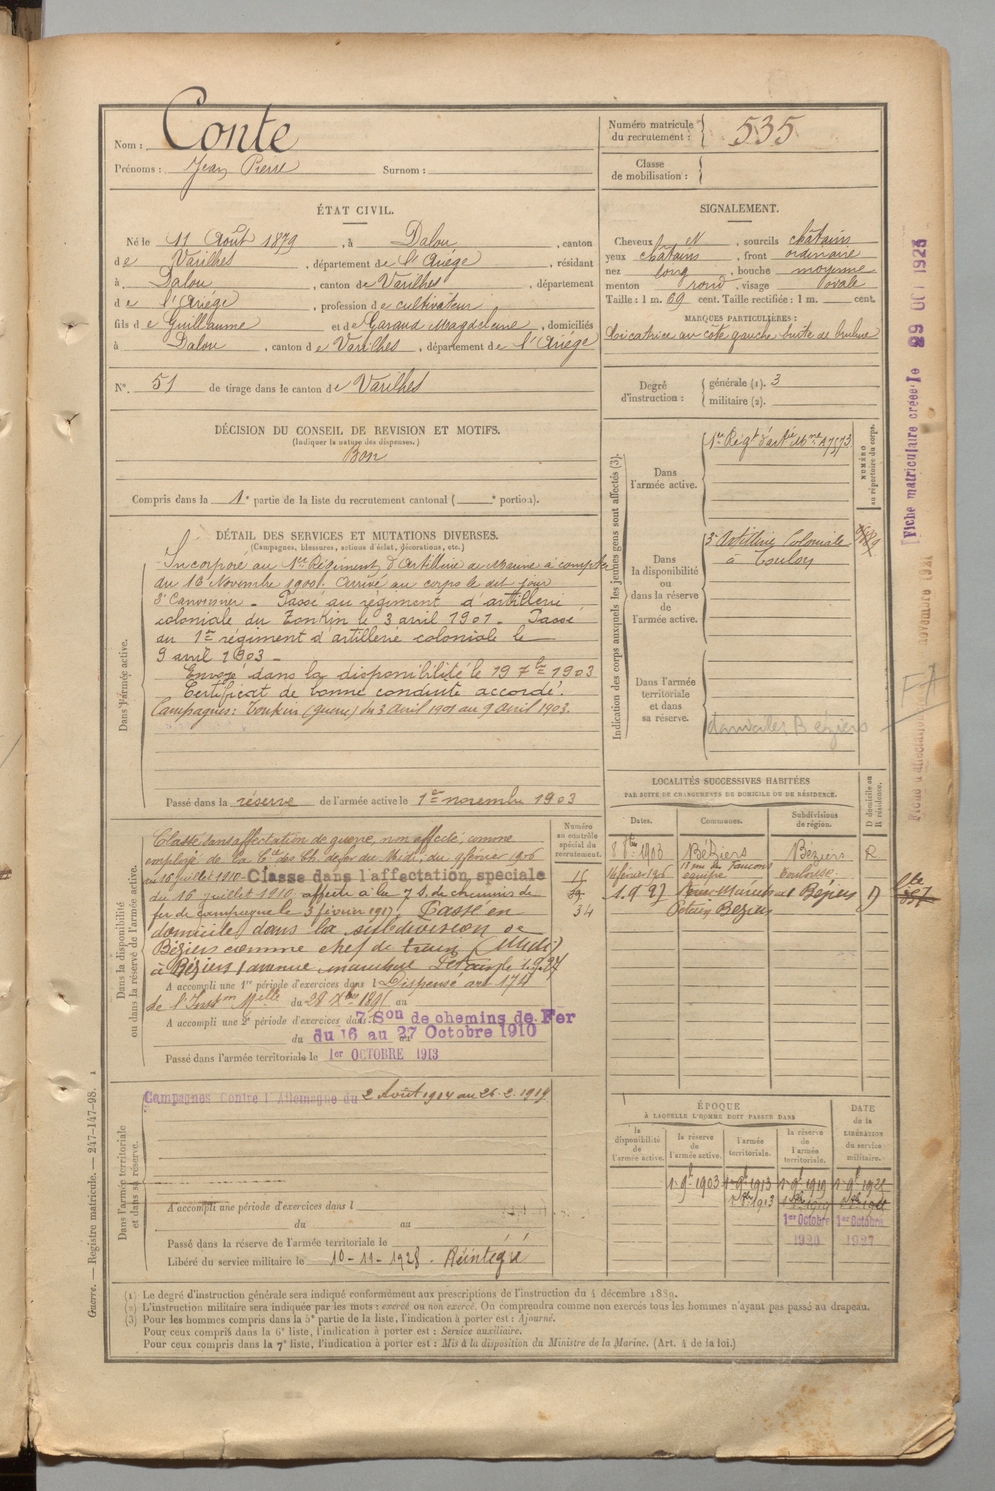 Nom : Conte
Prénoms : Jean Pierre Surnom :
Numéro matricule du recrutement : 535
Classe de mobilisation :
ÉTAT CIVIL.
Né le 11 Août 1879, à Dalou, canton
de Varilhes, département de l'Ariége, résidant
à Dalou, canton de Varilhes, département
de l'Ariége, profession de cultivateur
fils de Guillaume et de Garaud Magdeleine, domiciliés
à Dalou, canton de Varilhes, département de l'Ariége
N°. 51 de tirage dans le canton de Varilhes
SIGNALEMENT.
Cheveux N, sourcils châtains
yeux châtains, front ordinaire
nez long, bouche moyenne
menton rond, visage ovale
Taille : 1 m. 69 cent. Taille rectifiée : 1 m. cent.
MARQUES PARTICULIÈRES :
Cicatrice au côté gauche suite de brulure
Degré d'instruction : générale (1). 3
militaire (2).
DÉCISION DU CONSEIL DE REVISION ET MOTIFS.
(Indiquer la nature des dispenses.)
Bon
Compris dans la 1e partie de la liste du recrutement cantonal ( e portion).
DÉTAIL DES SERVICES ET MUTATIONS DIVERSES.
(Campagnes, blessures, actions d'éclat, décorations, etc.)
Dans l'armée active.
Incorporé au 1er Régiment d'Artillerie de Marine à compter
du 16 Novembre 1900. Arrivé au corps le dit jour
2e Canonnier - Passé au régiment d'artillerie
coloniale du Tonkin le 3 avril 1901 - Passé
au 1er régiment d'artillerie coloniale le
9 avril 1903 -
Envoyé dans la disponibilité le 19 7bre 1903
Certificat de bonne conduite accordé.
Campagnes : Tonkin (guerre) du 3 Avril 1901 au 9 Avril 1903.
Passé dans la réserve de l'armée active le 1er novembre 1903
Indication des corps auxquels les jeunes gens sont affectés (3).
Dans l'armée active.
NUMÉRO au répertoire du corps.
Dans la disponibilité ou dans la réserve de l'armée active.
5e Artillerie Coloniale
à Toulon
Dans l'armée territoriale et dans sa réserve.
domicilié Béziers
Fiche matriculaire créée le 29 OCT 1925
Dans la disponibilité ou dans la réserve de l'armée active.
Classé sans affectation de guerre, non affecté, comme
employé de la Cie des Ch. de fer du Midi, du 9 février 1906
au 16 juillet 1910 - Classé dans l'affectation spéciale
du 16 juillet 1910, affecté à la 7e S. de chemins de
fer de campagne le 3 février 1917. Passé en
domicile dans la subdivision de
Béziers comme chef de train (Midi)
à Béziers 1 avenue maréchal Pétain le 1.9.27
A accompli une 1re période d'exercices dans l Dispensé art. 174
de l'Inston Melle du 28 Xbre 1895 au
A accompli une 2e période d'exercices dans 7 Son de chemins de Fer
du 16 au 27 Octobre 1910
Passé dans l'armée territoriale le 1er OCTOBRE 1913
Numéro au contrôle spécial du recrutement.
34
LOCALITÉS SUCCESSIVES HABITÉES
PAR SUITE DE CHANGEMENTS DE DOMICILE OU DE RÉSIDENCE.
Dates. Communes. Subdivisions de région. D domicile ou R résidence.
8 8bre 1903 Béziers Béziers R
16 février 1906 Toulouse
1.9.27 Béziers D
Pétain Béziers
Dans l'armée territoriale et dans sa réserve.
Campagnes Contre l'Allemagne du 2 Août 1914 au 26.2.1919
A accompli une période d'exercices dans l
du au
Passé dans la réserve de l'armée territoriale le
Libéré du service militaire le 10-11-1928. Réintégré
ÉPOQUE
À LAQUELLE L'HOMME DOIT PASSER DANS
DATE de la LIBÉRATION du service militaire.
la disponibilité de l'armée active. la réserve de l'armée active. l'armée territoriale. la réserve de l'armée territoriale.
1er 9bre 1903 1er 9bre 1913 1er 9bre 1919
1er Octobre 1er Octobre
1920 1927
(1) Le degré d'instruction générale sera indiqué conformément aux prescriptions de l'instruction du 4 décembre 1889.
(2) L'instruction militaire sera indiquée par les mots : exercé ou non exercé. On comprendra comme non exercés tous les hommes n'ayant pas passé au drapeau.
(3) Pour les hommes compris dans la 5e partie de la liste, l'indication à porter est : Ajourné.
Pour ceux compris dans la 6e liste, l'indication à porter est : Service auxiliaire.
Pour ceux compris dans la 7e liste, l'indication à porter est : Mis à la disposition du Ministre de la Marine. (Art. 4 de la loi.)
Guerre. — Registre matricule. — 247-147-98.